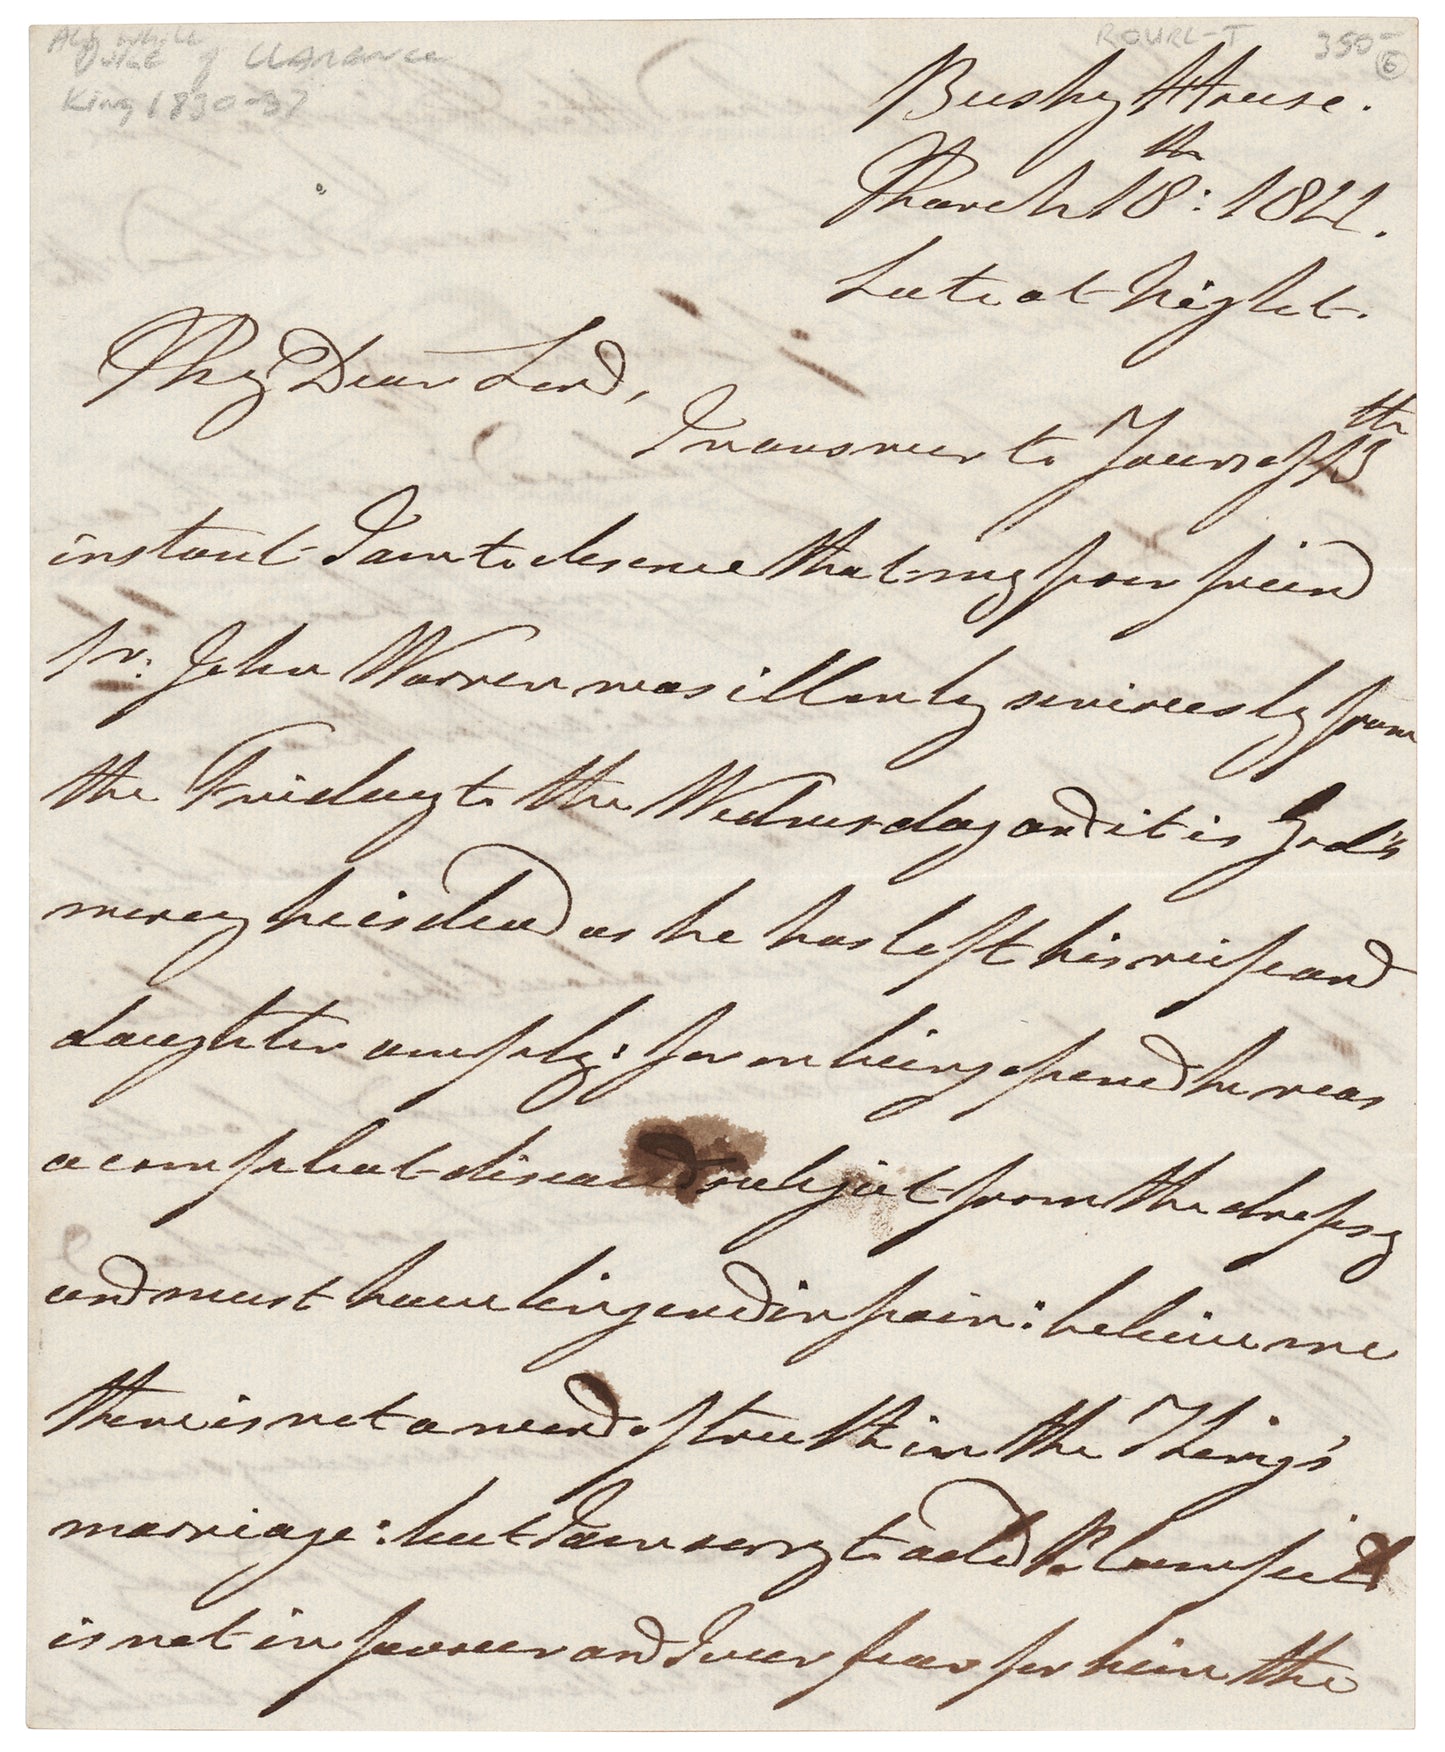 ALS while
Duke of CLARANCE
King 1830-37
ROYAL-I
350-
6
Bushy House.
March 18th: 1822.
Late at Night.
My Dear Lord,
In answer to Yours of 13th
instant I am to observe that my poor friend
Sr. John Warren was ill only seriously from
the Friday to the Wednesday and it is God's
mercy he is dead as he has left his wife and
daughter amply: for on being opened he was
a compleat diseased subject from the dropsy
and must have lingered in pain: believe me
there is not a word of truth in the King's
marriage: but I am sorry to add Bloomfield
is not in favour and I even fear for him the